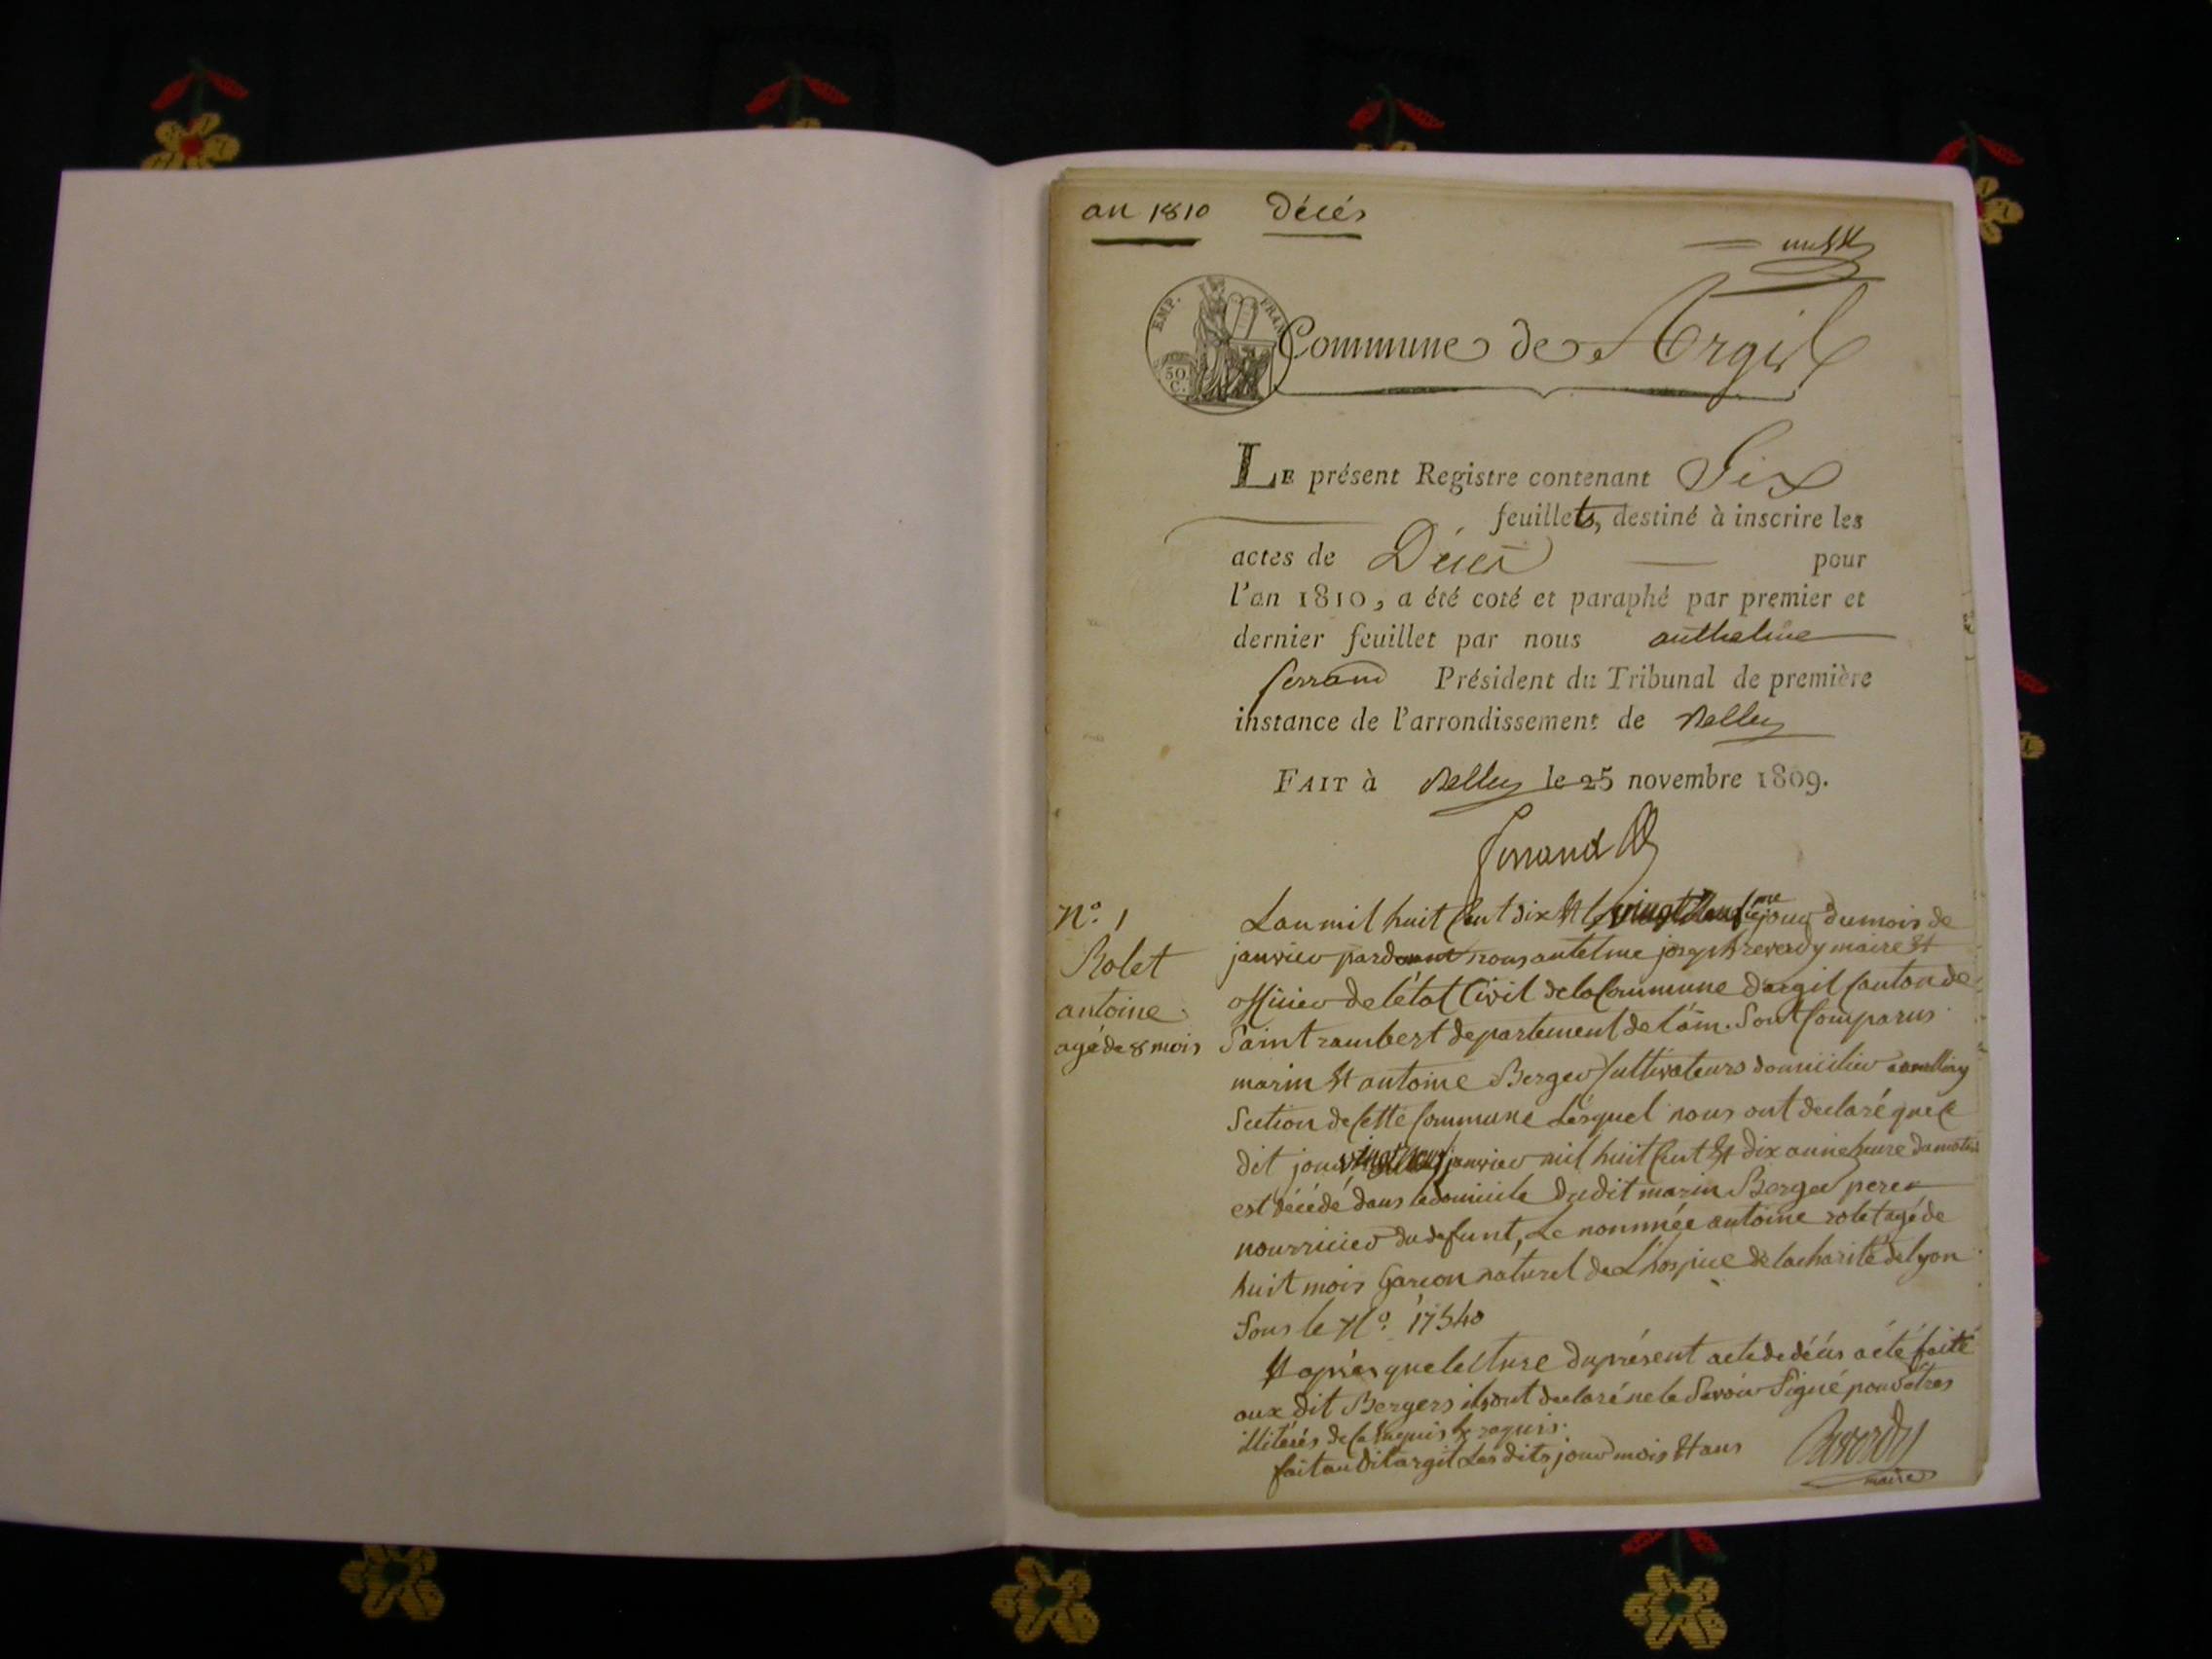 an 1810 Décés
EMP. FRAN
50
C.
Commune de Argil
LE présent Registre contenant Six
feuillets, destiné à inscrire les
actes de Décès pour
l'an 1810, a été coté et paraphé par premier et
dernier feuillet par nous anthelme
ferrand Président du Tribunal de première
instance de l'arrondissement de Belley
FAIT à Belley le 25 novembre 1809.
ferrand
N°. 1
Rolet
antoine
agé de 8 mois
Lan mil huit Cent dix & le vingt neufieme jour du mois de
janvier pardevant nous antelme joseph reverdy maire &
officier de l'état Civil de la Commune d'argil Canton de
Saint rambert departement de l'ain. Sont Comparus
marin & antoine Berger Cultivateurs domicilier
Section de Cette Commune Lesquel nous ont declaré que Ce
dit jour vingt neuf janvier mil huit Cent & dix a onne heure du matin
est décédé dans le domicile dudit marin Berger pere
nourricier du defunt, Le nommée antoine rolet agé de
huit mois Garcon naturel de L'hospice de la charité de lyon
Sous le N°. 17540
& après que lecture du présent acte de décés a été faite
aux dit Bergers ils ont declaré ne le Savoir Signé pour êtres
illiterés de Ce enquis & requis.
fait au dit argit Les dits jour mois & ans
Reverdy
maire